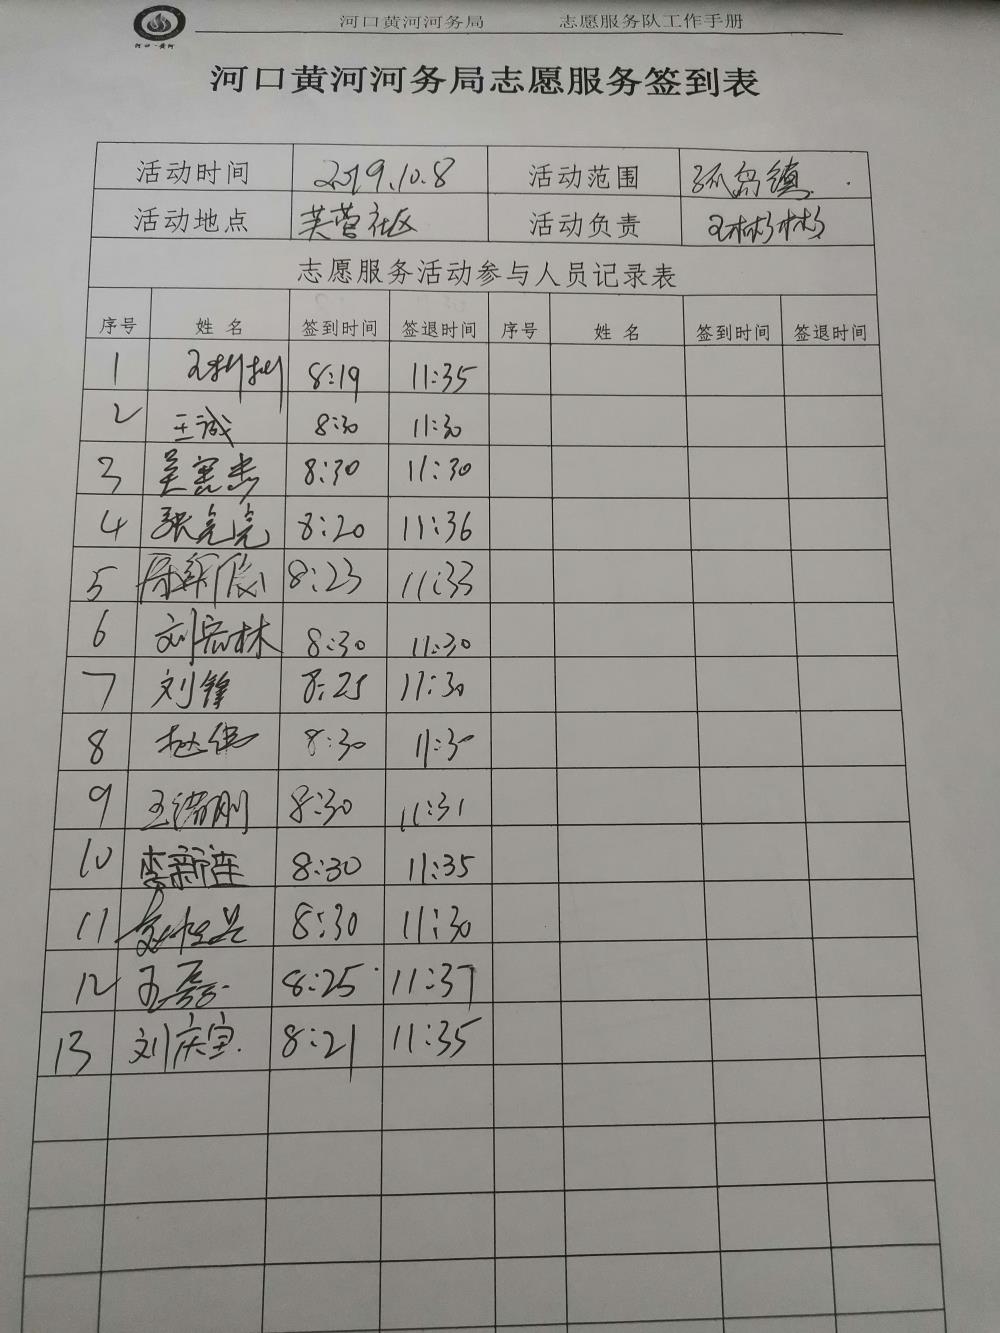 河口·黄河
河口黄河河务局 志愿服务队工作手册
河口黄河河务局志愿服务签到表
活动时间 2019.10.8 活动范围 孤岛镇
活动地点 芙蓉社区 活动负责 王彬彬
志愿服务活动参与人员记录表
序号 姓名 签到时间 签退时间 序号 姓名 签到时间 签退时间
1 王彬彬 8:19 11:35
2 王诚 8:30 11:30
3 吴宪杰 8:30 11:30
4 张亮亮 8:20 11:36
5 8:23 11:33
6 刘宏林 8:30 11:30
7 刘锋 8:25 11:30
8 赵伟 8:30 11:30
9 王绪刚 8:30 11:31
10 李新连 8:30 11:35
11 8:30 11:30
12 王磊 8:25 11:37
13 刘庆宝 8:21 11:35